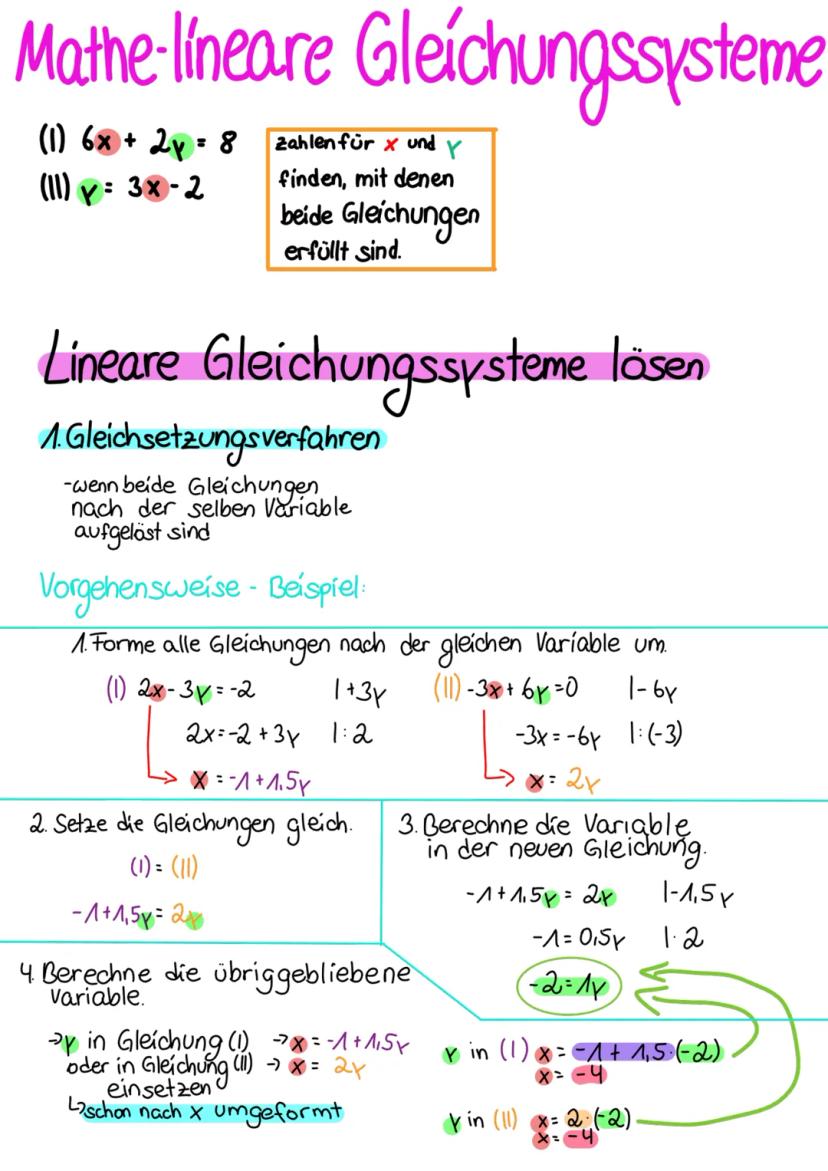 Mathe-lineare Gleichungssysteme
(I) 6x + 2y = 8
(II) y = 3x - 2
zahlen für x und y
finden, mit denen
beide Gleichungen
erfüllt sind.
Lineare Gleichungssysteme lösen
1. Gleichsetzungsverfahren
-wenn beide Gleichungen
nach der selben Variable
aufgelöst sind
Vorgehensweise - Beispiel:
1. Forme alle Gleichungen nach der gleichen Variable um.
(I) 2x - 3y = -2 |+3y
2x = -2 + 3y |:2
x = -1 + 1,5y
(II) -3x + 6y = 0 |-6y
-3x = -6y |:(-3)
x = 2y
2. Setze die Gleichungen gleich.
(I) = (II)
-1 + 1,5y = 2y
3. Berechne die Variable
in der neuen Gleichung.
-1 + 1,5y = 2y |-1,5y
-1 = 0,5y |·2
-2 = 1y
4. Berechne die übriggebliebene
Variable.
→y in Gleichung (I) → x = -1 + 1,5y
oder in Gleichung (II) → x = 2y
einsetzen
↳schon nach x umgeformt
y in (I) x = -1 + 1,5·(-2)
x = -4
y in (II) x = 2·(-2)
x = -4